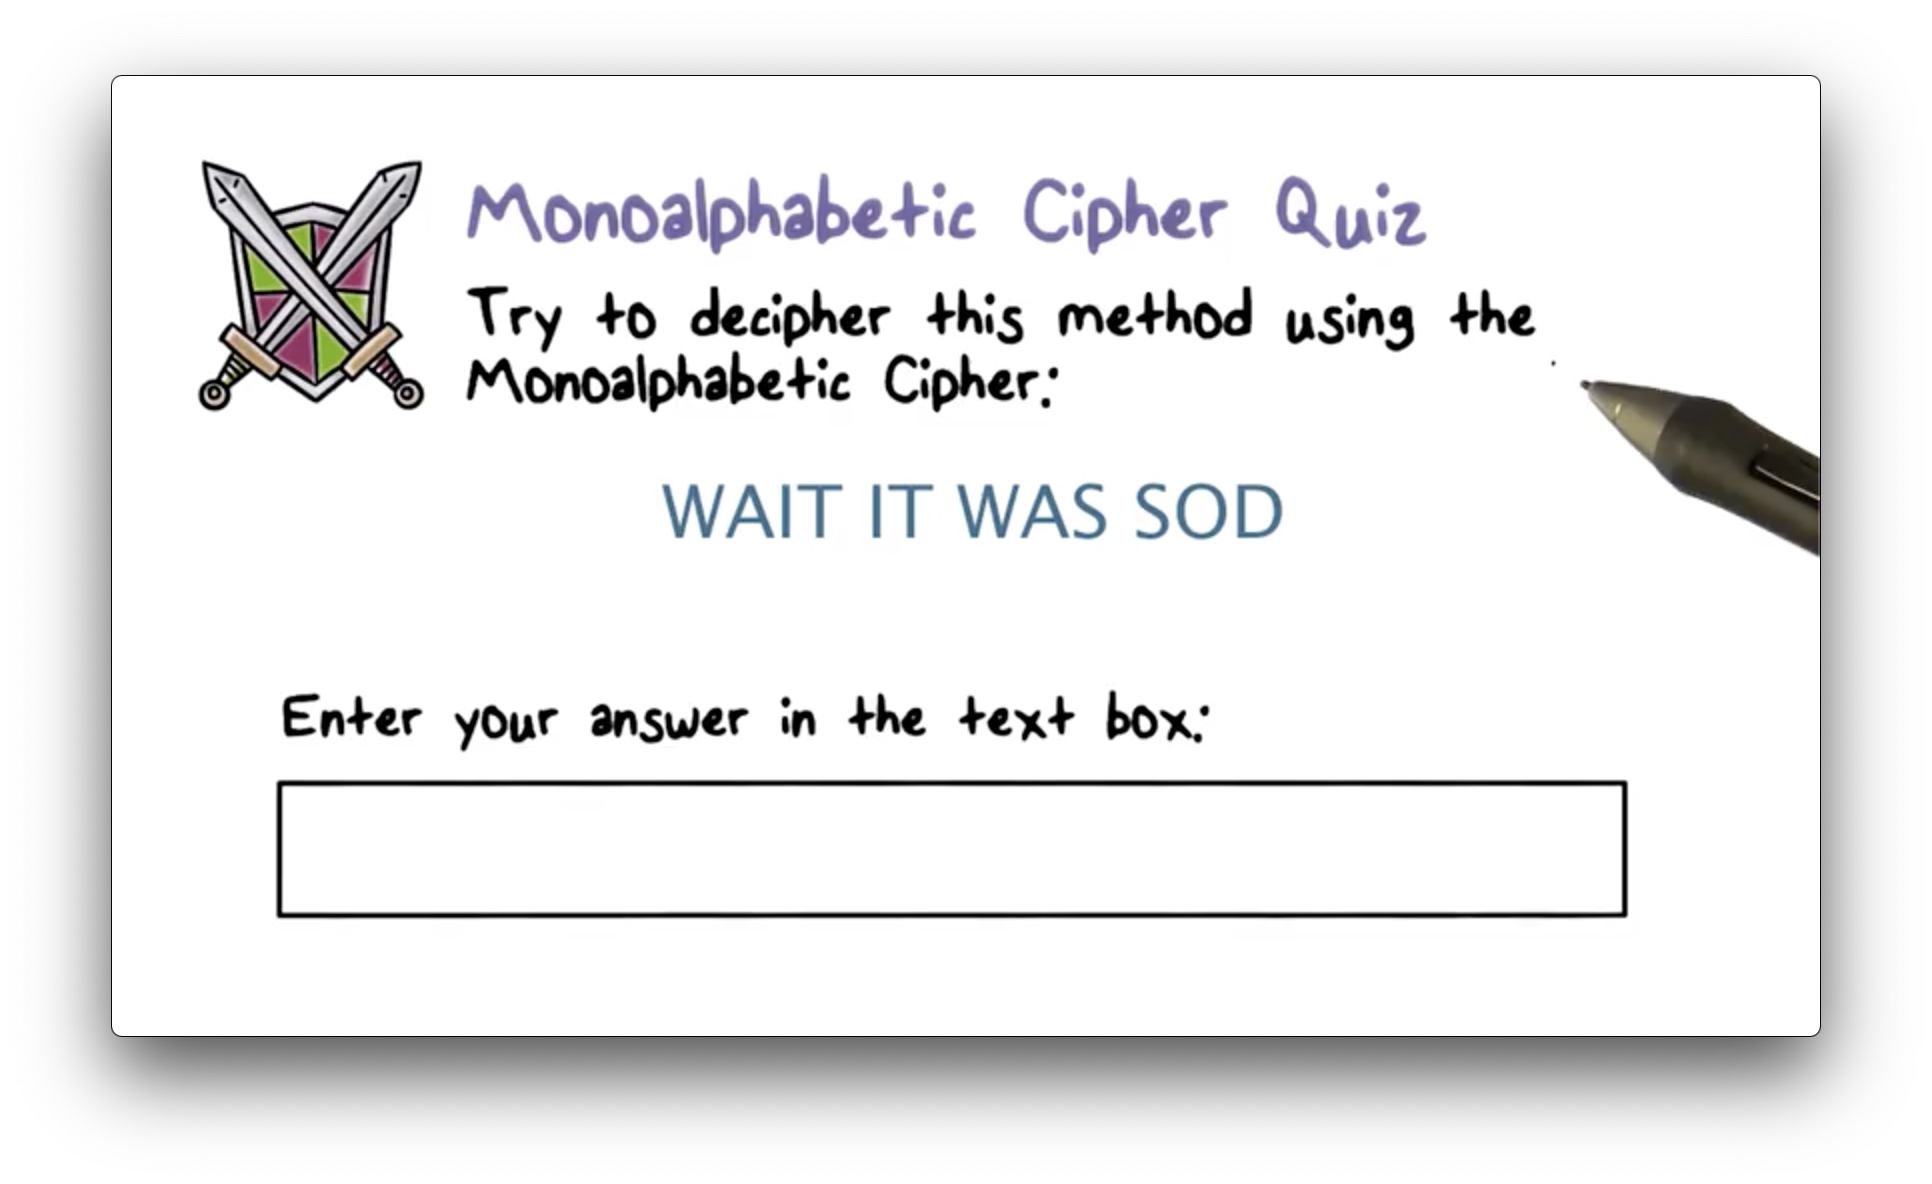 Monoalphabetic Cipher Quiz
Try to decipher this method using the
Monoalphabetic Cipher:
WAIT IT WAS SOD
Enter your answer in the text box: